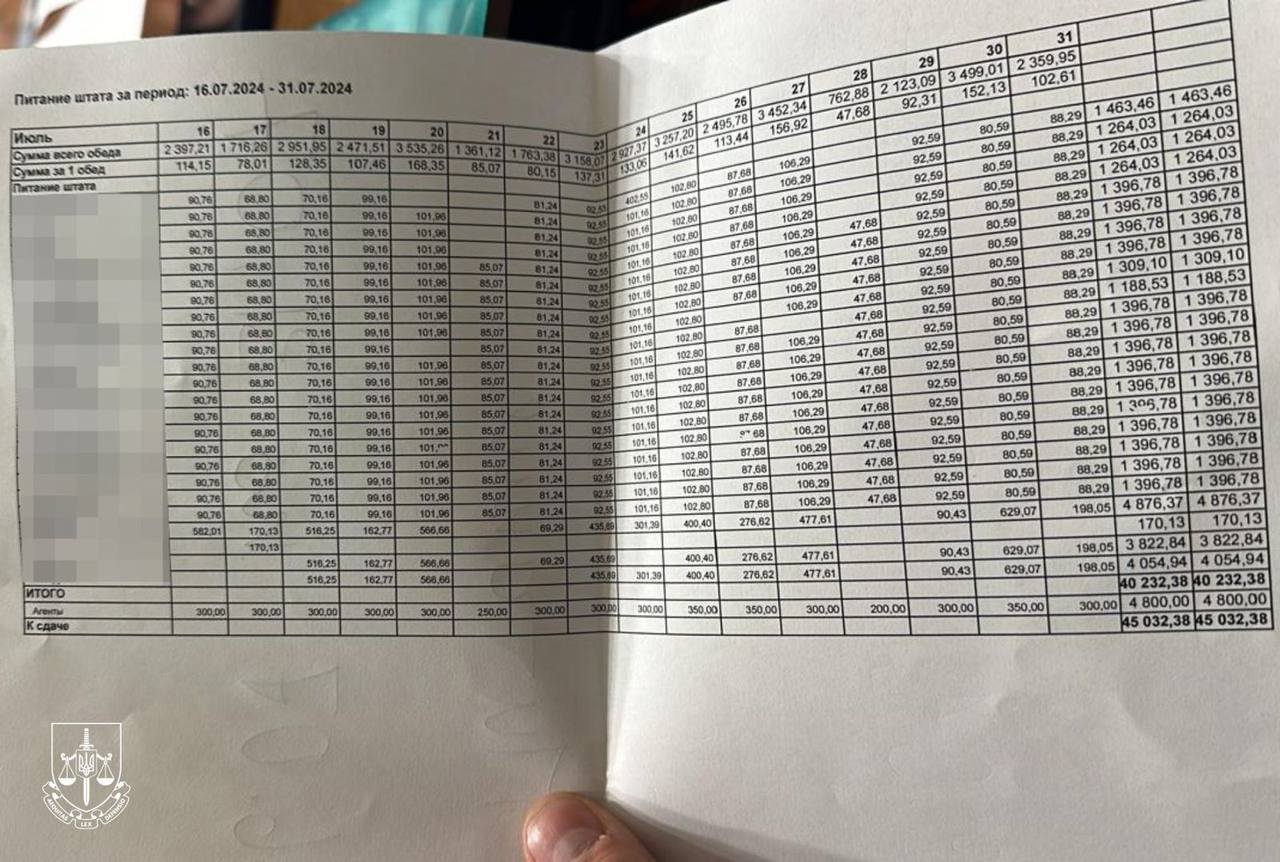 Питание штата за период: 16.07.2024 - 31.07.2024
Июль 16 17 18 19 20 21 22 23 24 25 26 27 28 29 30 31
Сумма всего обеда 2 397,21 1 716,26 2 951,95 2 471,51 3 535,26 1 361,12 1 763,38 3 158,07 2 927,37 3 257,20 2 495,78 3 452,34 762,88 2 123,09 3 499,01 2 359,95
Сумма за 1 обед 114,15 78,01 128,35 107,46 168,35 85,07 80,15 137,31 133,06 141,62 113,44 156,92 47,68 92,31 152,13 102,61
Питание штата
90,76 68,80 70,16 99,16 81,24 92,55 402,55 102,80 87,68 106,29 92,59 80,59 88,29 1 463,46 1 463,46
90,76 68,80 70,16 99,16 101,96 81,24 92,55 101,16 102,80 87,68 106,29 92,59 80,59 88,29 1 264,03 1 264,03
90,76 68,80 70,16 99,16 101,96 81,24 92,55 101,16 102,80 87,68 106,29 92,59 80,59 88,29 1 264,03 1 264,03
90,76 68,80 70,16 99,16 101,96 81,24 92,55 101,16 102,80 87,68 106,29 92,59 80,59 88,29 1 264,03 1 264,03
90,76 68,80 70,16 99,16 101,96 85,07 81,24 92,55 101,16 102,80 87,68 106,29 47,68 92,59 80,59 88,29 1 396,78 1 396,78
90,76 68,80 70,16 99,16 101,96 85,07 81,24 92,55 101,16 102,80 87,68 106,29 47,68 92,59 80,59 88,29 1 396,78 1 396,78
90,76 68,80 70,16 99,16 101,96 85,07 81,24 92,55 101,16 102,80 87,68 106,29 47,68 92,59 80,59 88,29 1 396,78 1 396,78
90,76 68,80 70,16 99,16 101,96 85,07 81,24 92,55 101,16 102,80 87,68 106,29 47,68 92,59 80,59 88,29 1 396,78 1 396,78
90,76 68,80 70,16 99,16 101,96 85,07 81,24 92,55 101,16 102,80 106,29 47,68 92,59 80,59 88,29 1 309,10 1 309,10
90,76 68,80 70,16 99,16 85,07 81,24 92,55 101,16 102,80 87,68 47,68 92,59 80,59 88,29 1 188,53 1 188,53
90,76 68,80 70,16 99,16 101,96 85,07 81,24 92,55 101,16 102,80 87,68 106,29 47,68 92,59 80,59 88,29 1 396,78 1 396,78
90,76 68,80 70,16 99,16 101,96 85,07 81,24 92,55 101,16 102,80 87,68 106,29 47,68 92,59 80,59 88,29 1 396,78 1 396,78
90,76 68,80 70,16 99,16 101,96 85,07 81,24 92,55 101,16 102,80 87,68 106,29 47,68 92,59 80,59 88,29 1 396,78 1 396,78
90,76 68,80 70,16 99,16 101,96 85,07 81,24 92,55 101,16 102,80 87,68 106,29 47,68 92,59 80,59 88,29 1 396,78 1 396,78
90,76 68,80 70,16 99,16 101,96 85,07 81,24 92,55 101,16 102,80 87,68 106,29 47,68 92,59 80,59 88,29 1 396,78 1 396,78
90,76 68,80 70,16 99,16 101,96 85,07 81,24 92,55 101,16 102,80 87,68 106,29 47,68 92,59 80,59 88,29 1 396,78 1 396,78
90,76 68,80 70,16 99,16 101,96 85,07 81,24 92,55 101,16 102,80 87,68 106,29 47,68 92,59 80,59 88,29 1 396,78 1 396,78
90,76 68,80 70,16 99,16 101,96 85,07 81,24 92,55 101,16 102,80 87,68 106,29 47,68 92,59 80,59 88,29 1 396,78 1 396,78
90,76 68,80 70,16 99,16 101,96 85,07 81,24 92,55 101,16 102,80 87,68 106,29 47,68 92,59 80,59 88,29 1 396,78 1 396,78
90,76 68,80 70,16 99,16 101,96 85,07 81,24 92,55 101,16 102,80 87,68 106,29 47,68 92,59 80,59 88,29 1 396,78 1 396,78
582,01 170,13 516,25 162,77 566,66 69,29 435,69 301,39 400,40 276,62 477,61 90,43 629,07 198,05 4 876,37 4 876,37
170,13 170,13 170,13
516,25 162,77 566,66 69,29 435,69 400,40 276,62 477,61 90,43 629,07 198,05 3 822,84 3 822,84
516,25 162,77 566,66 435,69 301,39 400,40 276,62 477,61 90,43 629,07 198,05 4 054,94 4 054,94
ИТОГО 40 232,38 40 232,38
Агенты 300,00 300,00 300,00 300,00 300,00 250,00 300,00 300,00 300,00 350,00 350,00 300,00 200,00 300,00 350,00 300,00 4 800,00 4 800,00
К сдаче 45 032,38 45 032,38
AEQUITAS LEX DEFENSIO